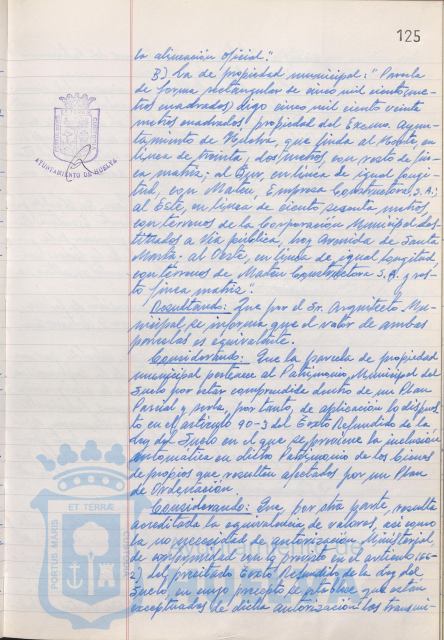 125
la alineación oficial".
B) La de propiedad municipal: "Parcela
de forma rectangular de cinco mil ciento me-
tros cuadrados, digo cinco mil ciento veinte
metros cuadrados, propiedad del Excmo. Ayun-
tamiento de Huelva, que linda al Norte, en
línea de treinta y dos metros, con resto de fin-
ca matriz; al Sur, en línea de igual longi-
tud, con Mateu, Empresa Constructora S.A;
al Este, en línea de ciento sesenta metros,
con terrenos de la Corporación Municipal des-
tinados a vía pública, hoy Avenida de Santa
Marta; al Oeste, en línea de igual longitud
con terrenos de Mateu Constructora S.A. y res-
to finca matriz".
Resultando: Que por el Sr. Arquitecto Mu-
nicipal, se informa que el valor de ambas
parcelas es equivalente.
Considerando: Que la parcela de propiedad
municipal pertenece al Patrimonio Municipal del
Suelo por estar comprendida dentro de un Plan
Parcial y serle, por tanto, de aplicación lo dispues-
to en el artículo 90-3 del Texto Refundido de la
Ley del Suelo en el que se previene la inclusión
automática en dicho Patrimonio de los bienes
de propios que resulten afectados por un Plan
de Ordenación.
Considerando: Que, por otra parte, resulta
acreditada la equivalencia de valores, así como
la no necesidad de autorización Ministerial,
de conformidad con lo previsto en el artículo 166-
2) del precitado Texto Refundido de la Ley del
Suelo, en cuyo precepto se establece que están
exceptuadas de dicha autorización las transmi-
AYUNTAMIENTO DE HUELVA
ET TERRAE
PORTUS MARIS